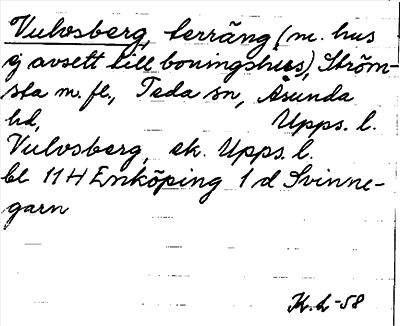 Vulvsberg, terräng (m. hus
ej avsett till boningshus), Ström-
sta m. fl., Teda sn, Åsunda
hd, Upps. l.
Vulvsberg, ek. Upps. l.
bl 11 H Enköping 1 d Svinne-
garn
K. L -58